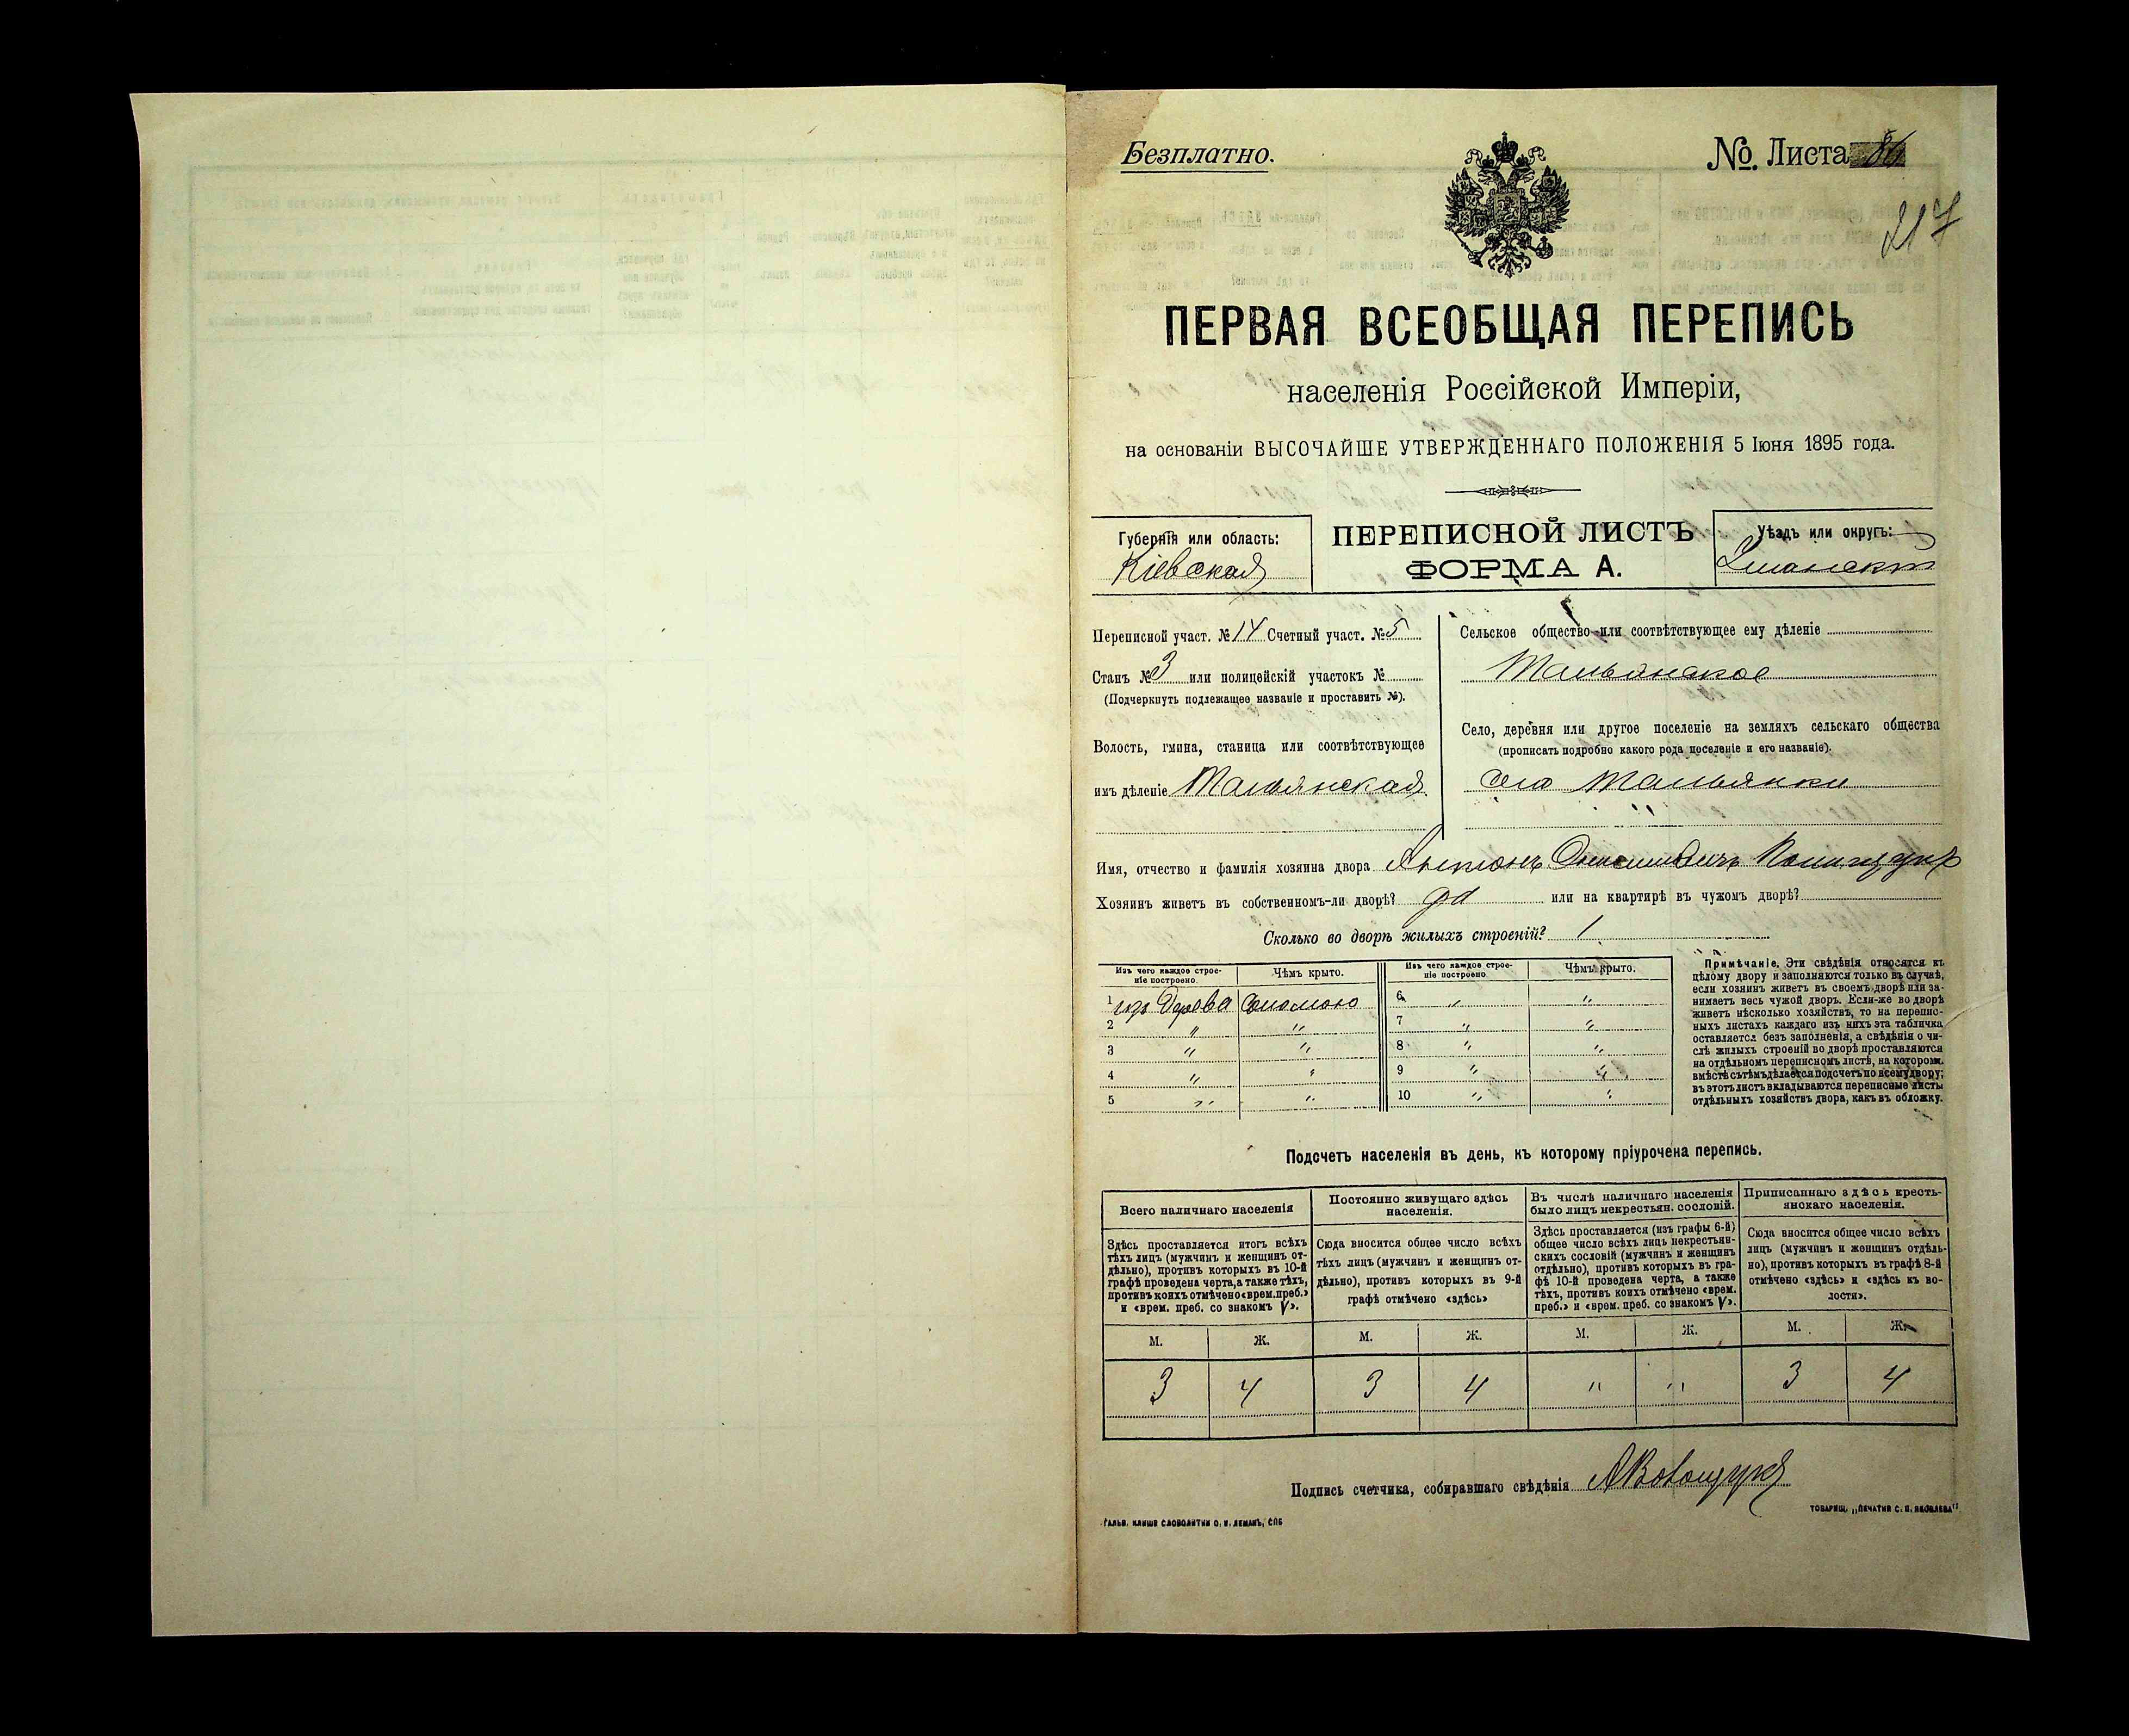 Безплатно.
№ Листа
217
ПЕРВАЯ ВСЕОБЩАЯ ПЕРЕПИСЬ
населенія Россійской Имперіи,
на основаніи ВЫСОЧАЙШЕ УТВЕРЖДЕННАГО ПОЛОЖЕНІЯ 5 Іюня 1895 года.
Губернія или область:
Кіевская
ПЕРЕПИСНОЙ ЛИСТЪ
ФОРМА А.
Уѣздъ или округъ:
Переписной участ. № 14 Счетный участ. № 5
Станъ № 3 или полицейскій участокъ №
(Подчеркнуть подлежащее названіе и проставить №).
Волость, гмина, станица или соотвѣтствующее
имъ дѣленіе Тальянская
Сельское общество или соотвѣтствующее ему дѣленіе
Тальянское
Село, деревня или другое поселеніе на земляхъ сельскаго общества
(прописать подробно какого рода поселеніе и его названіе).
село Тальянки
Имя, отчество и фамилія хозяина двора Антонъ
Хозяинъ живетъ въ собственномъ-ли дворѣ? да или на квартирѣ въ чужомъ дворѣ?
Сколько во дворѣ жилыхъ строеній? 1
Изъ чего каждое строе-
ніе построено.
Чѣмъ крыто.
Изъ чего каждое строе-
ніе построено.
Чѣмъ крыто.
1 изъ дерева Соломою 6 " "
2 " " 7 " "
3 " " 8 " "
4 " " 9 " "
5 " " 10 " "
Примѣчаніе. Эти свѣдѣнія относятся къ
цѣлому двору и заполняются только въ случаѣ,
если хозяинъ живетъ въ своемъ дворѣ или за-
нимаетъ весь чужой дворъ. Если-же во дворѣ
живетъ нѣсколько хозяйствъ, то на перепис-
ныхъ листахъ каждаго изъ нихъ эта табличка
оставляется безъ заполненія, а свѣдѣнія о чи-
слѣ жилыхъ строеній во дворѣ проставляются
на отдѣльномъ переписномъ листѣ, на которомъ
вмѣстѣ съ тѣмъ дѣлается подсчетъ по всему двору;
въ этотъ листъ вкладываются переписные листы
отдѣльныхъ хозяйствъ двора, какъ въ обложку.
Подсчетъ населенія въ день, къ которому пріурочена перепись.
Всего наличнаго населенія
Здѣсь проставляется итогъ всѣхъ
тѣхъ лицъ (мужчинъ и женщинъ от-
дѣльно), противъ которыхъ въ 10-й
графѣ проведена черта, а также тѣхъ,
противъ коихъ отмѣчено «врем. преб.»
и «врем. преб. со знакомъ V».
Постоянно живущаго здѣсь
населенія.
Сюда вносится общее число всѣхъ
тѣхъ лицъ (мужчинъ и женщинъ от-
дѣльно), противъ которыхъ въ 9-й
графѣ отмѣчено «здѣсь»
Въ числѣ наличнаго населенія
было лицъ некрестьян. сословій.
Здѣсь проставляется (изъ графы 6-й)
общее число всѣхъ лицъ некрестьян-
скихъ сословій (мужчинъ и женщинъ
отдѣльно), противъ которыхъ въ гра-
фѣ 10-й проведена черта, а также
тѣхъ, противъ коихъ отмѣчено «врем.
преб.» и «врем. преб. со знакомъ V».
Приписаннаго здѣсь кресть-
янскаго населенія.
Сюда вносится общее число всѣхъ
лицъ (мужчинъ и женщинъ отдѣль-
но), противъ которыхъ въ графѣ 8-й
отмѣчено «здѣсь» и «здѣсь въ во-
лости».
М. Ж. М. Ж. М. Ж. М. Ж.
3 4 3 4 " " 3 4
Подпись счетчика, собиравшаго свѣдѣнія
ГАЛЬВ. КЛИШЕ СЛОВОЛИТНИ О. И. ЛЕМАНЪ, СПБ
ТОВАРИЩ. „ПЕЧАТНЯ С. П. ЯКОВЛЕВА"